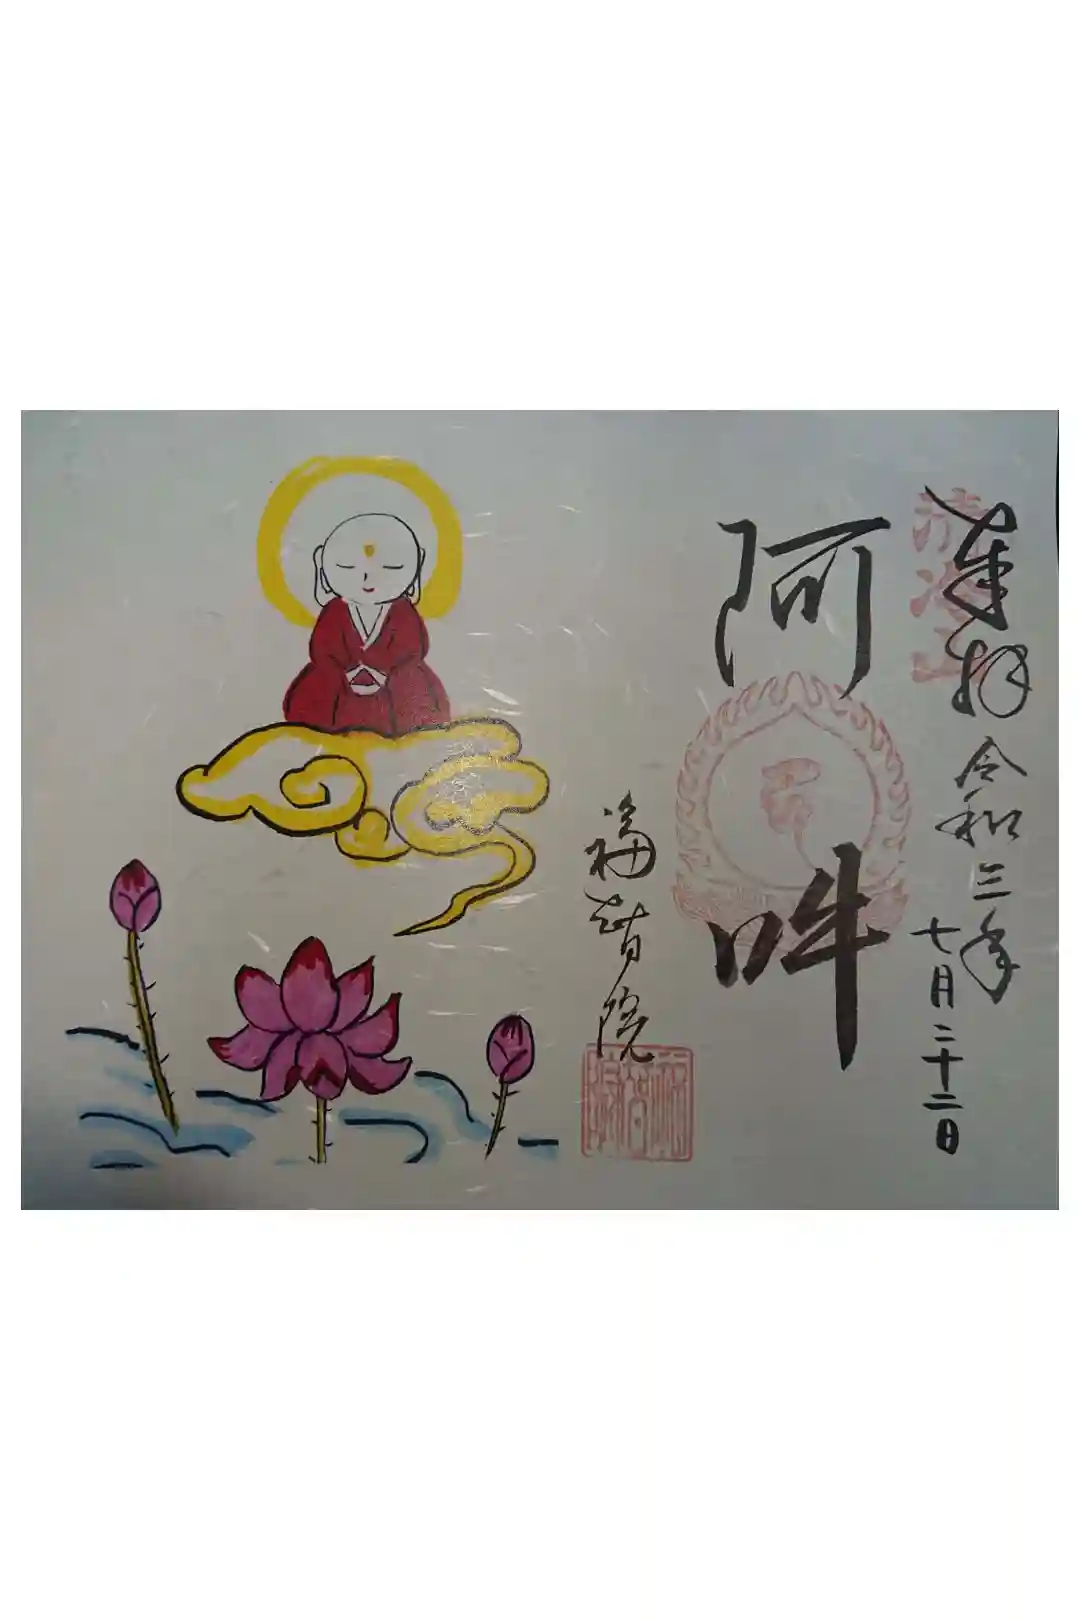 奉拝 令和三年
七月二十二日
清冷山
阿吽
福智院